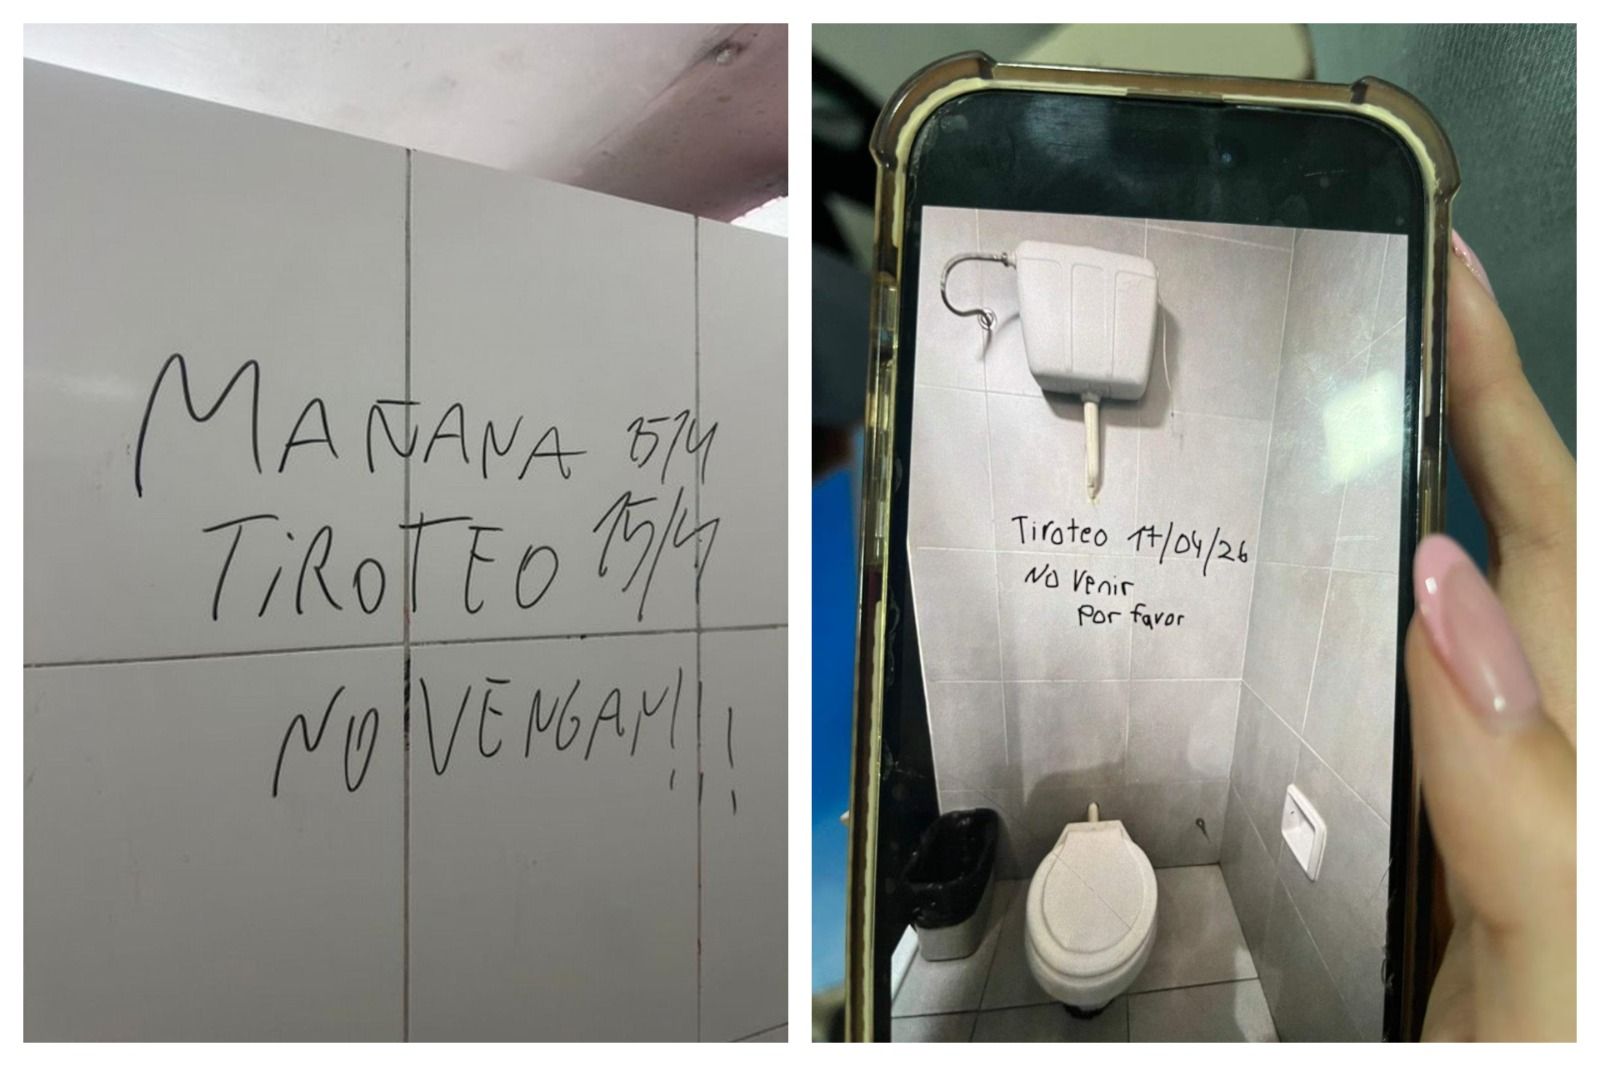 MAÑANA 15/4
TIROTEO 15/4
NO VENGAN!!!
Tiroteo 17/04/26
NO Venir
Por favor